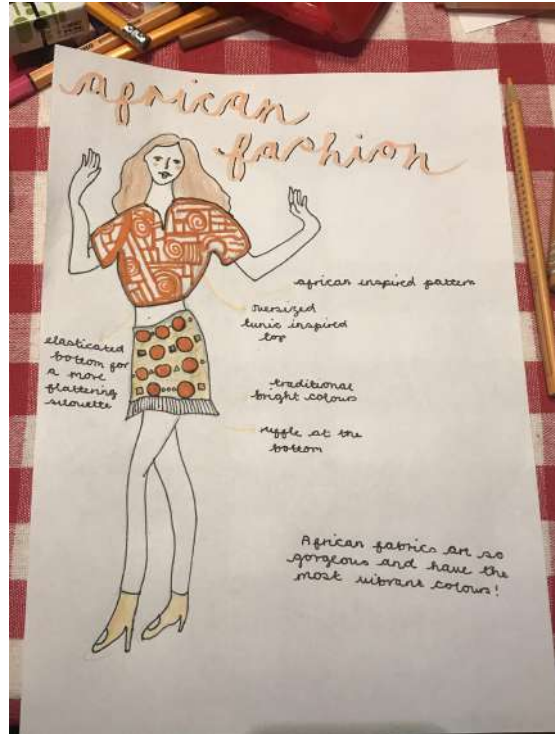 african
fashion
african inspired pattern
oversized
tunic inspired
top
elasticated
bottom for
a more
flattering
silouette
traditional
bright colours
ruffle at the
bottom
African fabrics are so
gorgeous and have the
most vibrant colours!